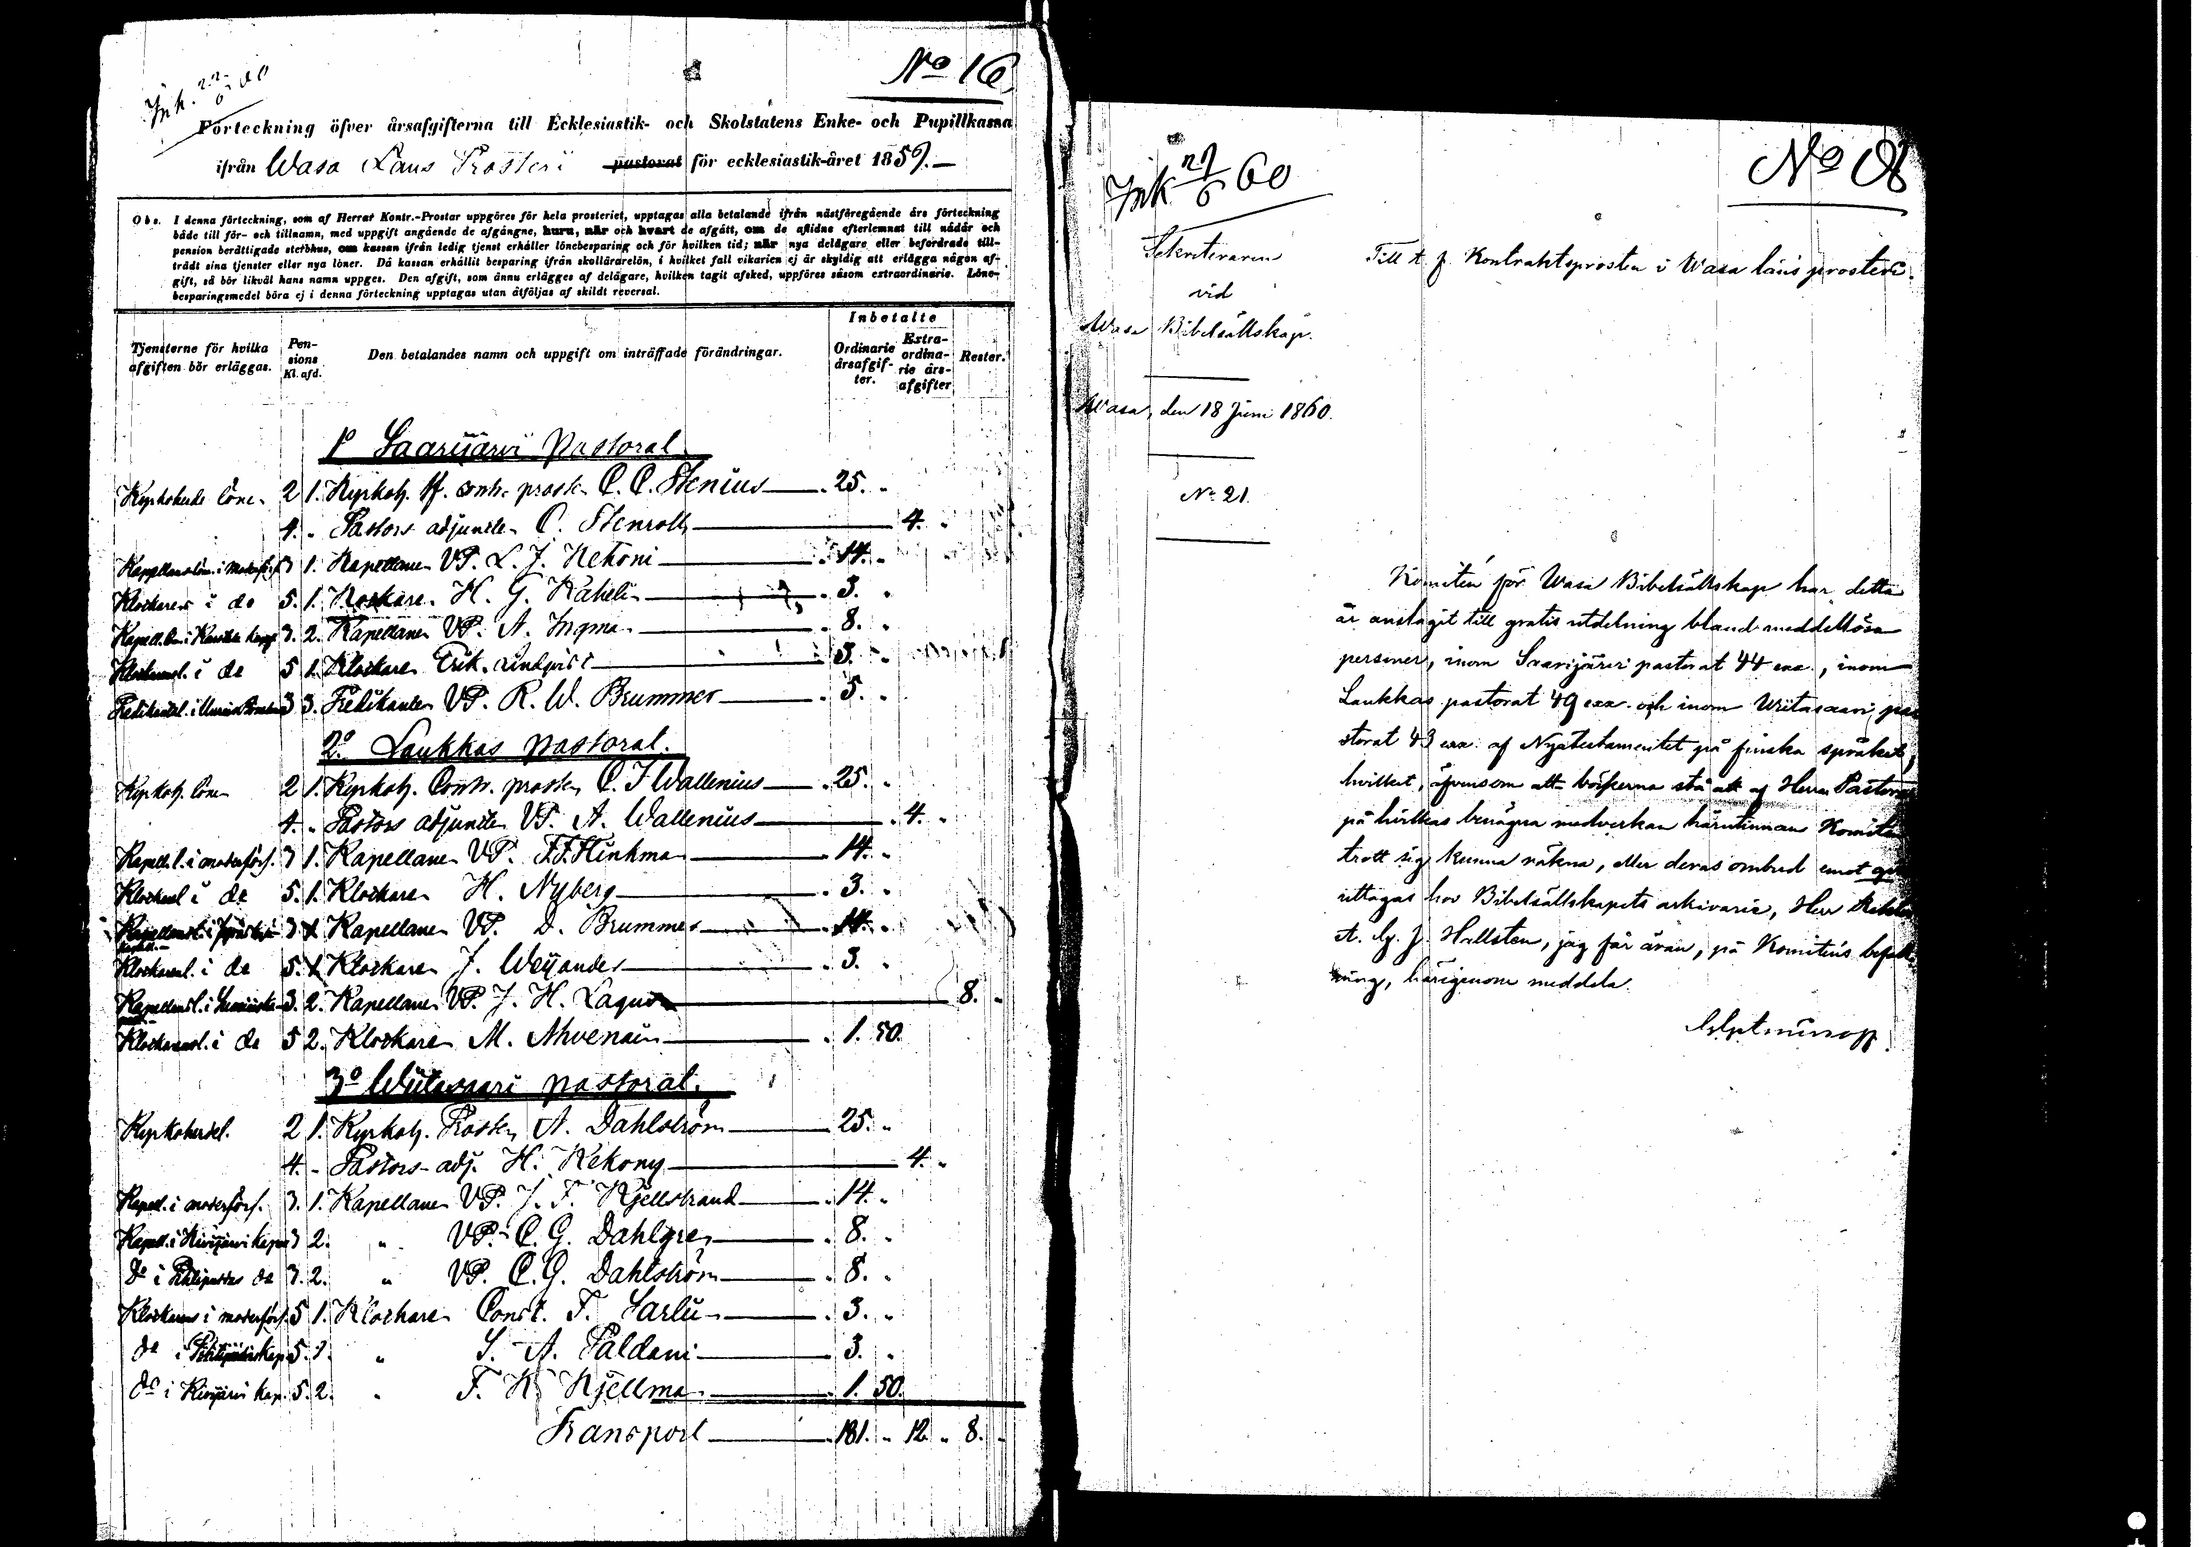 Ink. 22/6 60
No 16
Förteckning öfver årsafgifterna till Ecklesiastik- och Skolstatens Enke- och Pupillkassa
ifrån Wasa Läns Prosteri pastorat för ecklesiastik-året 1859.
Obs. I denna förteckning, som af Herrar Kontr.-Prostar uppgöres för hela prosteriet, upptagas alla betalande ifrån nästföregående års förteckning
både till för- och tillnamn, med uppgift angående de afgångne, huru, när och hvart de afgått, om de aflidne efterlemnat till nådår och
pension berättigade sterbhus, om kassan ifrån ledig tjenst erhåller lönebesparing och för hvilken tid; när nya delägare eller befordrade till-
trädt sina tjenster eller nya löner. Då kassan erhållit besparing ifrån skollärarelön, i hvilket fall vikarien ej är skyldig att erlägga någon af-
gift, så bör likväl hans namn uppges. Den afgift, som ännu erlägges af delägare, hvilken tagit afsked, uppföres såsom extraordinarie. Löne-
besparingsmedel böra ej i denna förteckning upptagas utan åtföljas af skildt reversal.
Tjensterne för hvilka afgiften bör erläggas.
Pensions Kl. afd.
Den betalandes namn och uppgift om inträffade förändringar.
Inbetalte
Ordinarie årsafgif-ter.
Extra-ordina-rie års-afgifter
Rester.
1o Saarijärvi Pastorat
Kyrkoherde löne 2 1. Kyrkoh. tf. contr. prosten C. C. Stenius 25. "
4. " Pastors adjuncten C. Stenroth 4. "
3 1. Kapellanen VP. L. J. Kekoni 14. "
Klockaren i do 5. 1. Klockaren H. G. Kahelin 3. "
3. 2. Kapellanen VP. A. Ingman 8. "
Klockarel. i do 5 1. Klockaren Erik Lindqvist 3. "
3 3. Predikanten VP. R. W. Brummer 5. "
2o Laukkas pastorat.
Kyrkoh. löne 2 1. Kyrkoh. Contr. prosten C. J Wallenius 25. "
4. " Pastors adjuncten VP. A. Wallenius 4. "
Kapell. l. i moderförs. 3 1. Kapellanen VP. F. F. Hinkman 14. "
Klockarel i do 5. 1. Klockaren H. Nyberg 3. "
3 1 Kapellanen VP. D. Brummer 14. "
Klockarel. i do 5. 1 Klockaren J. Weijander 3. "
3. 2. Kapellanen VP. J. H. Lagus 8. "
Klockarel. i do 5 2. Klockaren M. Ahvenain 1. 50.
3o Wiitasaari pastorat.
Kyrkoherdel. 2 1. Kyrkoh. Prosten A. Dahlström 25. "
4. " Pastors-adj. H. Kekony 4. "
Kapell. i moderförs. 3. 1. Kapellanen VP. J. F. Kjellstrand 14. "
Kapell. i Kivijärvi kapell 3 2. " VP. C. G. Dahlgren 8. "
Do i Pihtipudas do 3. 2. " VP. C. G. Dahlström 8. "
Klockarens i moderförs. 5 1. Klockaren Const. F. Sarlin 3. "
5. 1. " S. A. Paldani 3. "
do i Kivijärvi kap. 5. 2. " F. K. Kjellman 1. 50.
Transport 181. " 12 " 8. "
Ink 27/6 60
No 18
Sekreteraren
vid
Wasa Bibelsällskap.
Wasa, den 18 Juni 1860.
No 21.
Till t. f. Kontraktsprosten i Wasa läns prosteri.
Komitén för Wasa Bibelsällskap har detta
år anslagit till gratis utdelning bland meddellösa
personer, inom Saarijärvi pastorat 44 exx., inom
Laukkas pastorat 49 exx. och inom Wiitasaari pa
storat 43 exx. af Nya testamentet på finska språket,
hvilket, äfvensom att böckerna stå att af Herrar Pastorer
på hvilkas benägna medverkan härutinnan Komitén
trott sig kunna räkna, eller deras ombud emot
uttagas hos Bibelsällskapets arkivarie, Herr
A. G. J. Hallsten, jag får äran, på Komiténs befall
ning, härigenom meddela.